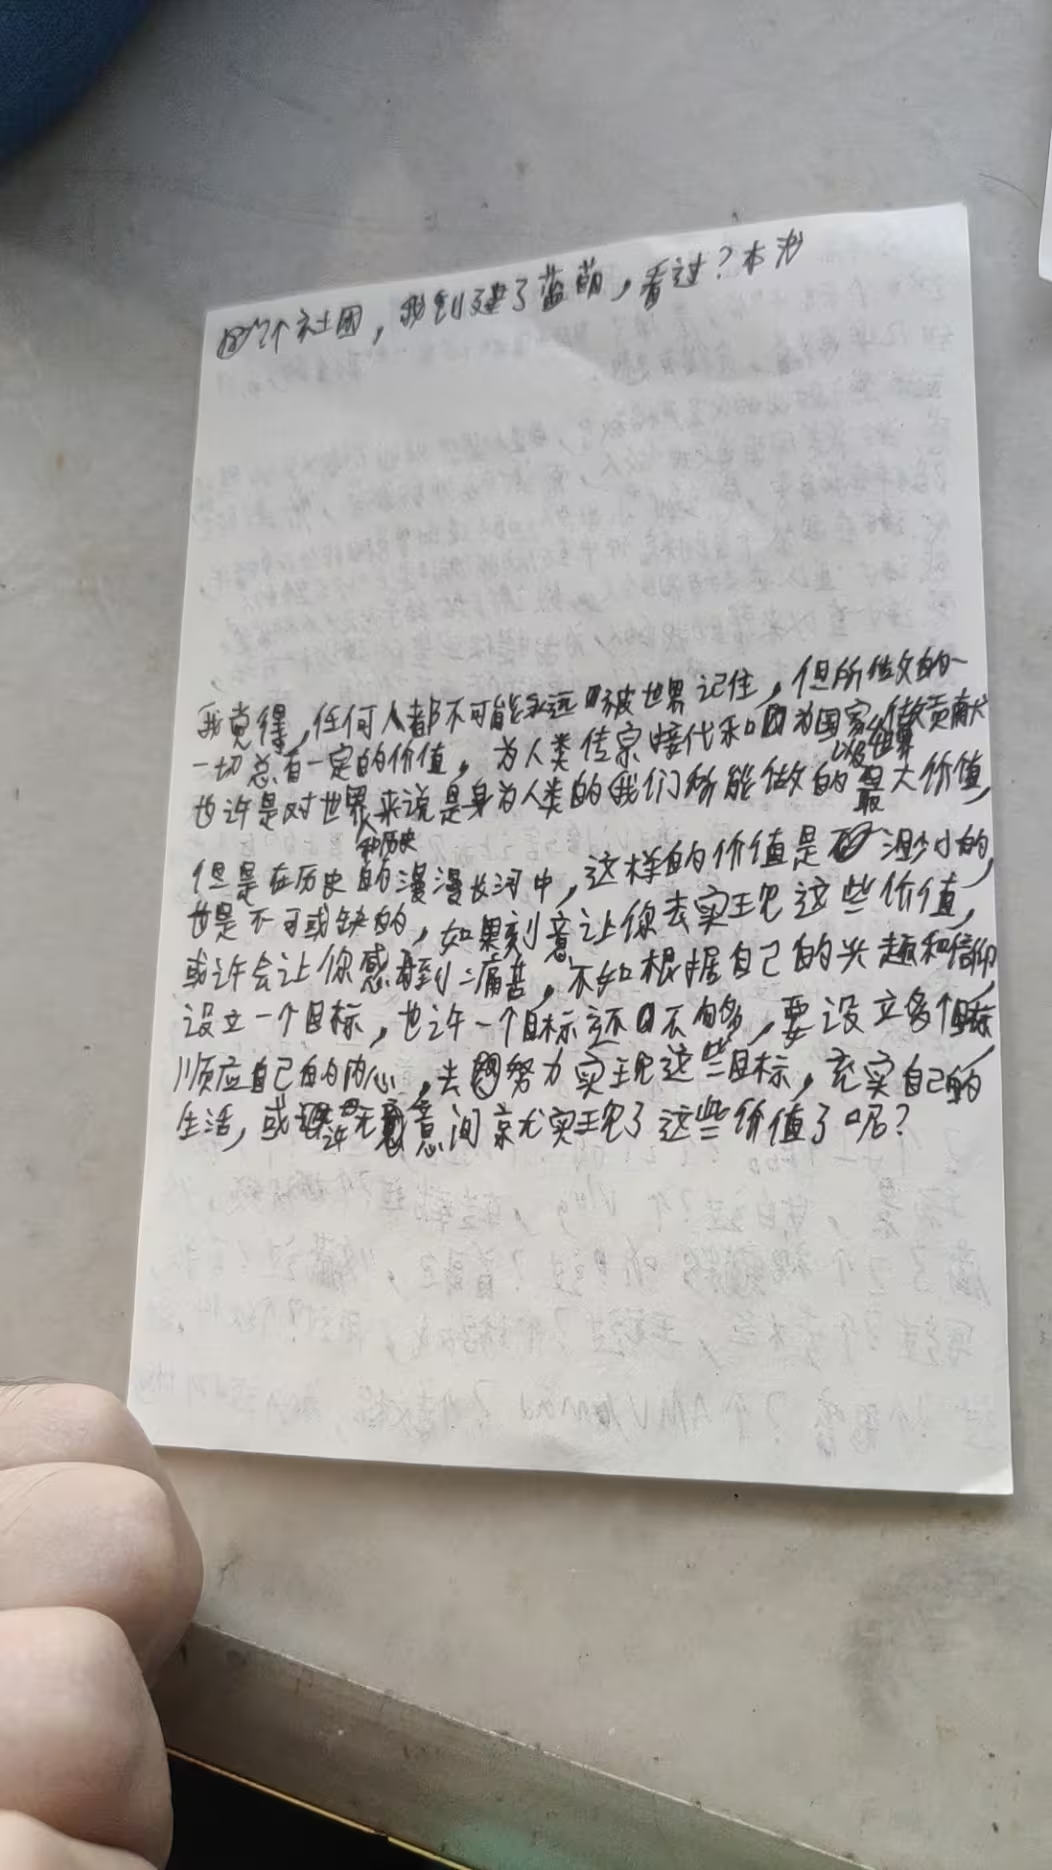 个社团，我创建了蓝萌，看过？本
我觉得，任何人都不可能永远被世界记住，但所做的一
一切总有一定的价值，为人类传宗接代和为国家以及世界做贡献
也许是对世界和历史来说是身为人类的我们所能做的最大价值，
但是在历史的漫漫长河中，这样的价值是渺小的，
也是不可或缺的，如果刻意让你去实现这些价值，
或许会让你感到痛苦，不如根据自己的兴趣和信仰
设立一个目标，也许一个目标还不够，要设立多个目标，
顺应自己的内心，去努力实现这些目标，充实自己的
生活，或许无意间就实现了这些价值了呢？